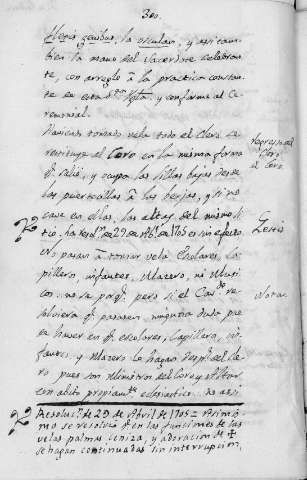 320.
flexis genibus, la osculan, y assi tam-
bien la mano del Sacerdote celebran-
te, con arreglo à la practica constan-
te en esta Sta. Yglª. y conforme al Ce-
remonial.
Haviendo tomado vela todo el Clero se
restituye al Coro en la misma forma
q. saliò, y ocupa las sillas bajas desde
las puertecillas à las berjas, y si no
cave en ellas, las altas del mismo si-
tio, ha resolⁿ. de 29 de Abl. de 1705 es en efecto
No pasan à tomar vela Escolares, Ca-
pilleros, infantes, Mazero, ni Musi-
cos, no sa porq. pero si el Cavdo. re-
solviera q. pasasen ninguna duda pue-
de haver en q. escolares, Capillero, in-
fantes, y Mazero lo hagan despues del Cle-
ro pues son Ministros del Coro y Altar
con abito propiamte. eclesiastico no assi
Regreso del
Clero
al Coro
Notar.
Resolucⁿ. de 29 de Abril de 1705 = Assimis-
mo se resolviò q. en las funciones de las
velas palmas ceniza, y adoracion de +
se hagan continuadas sin interrupcion,